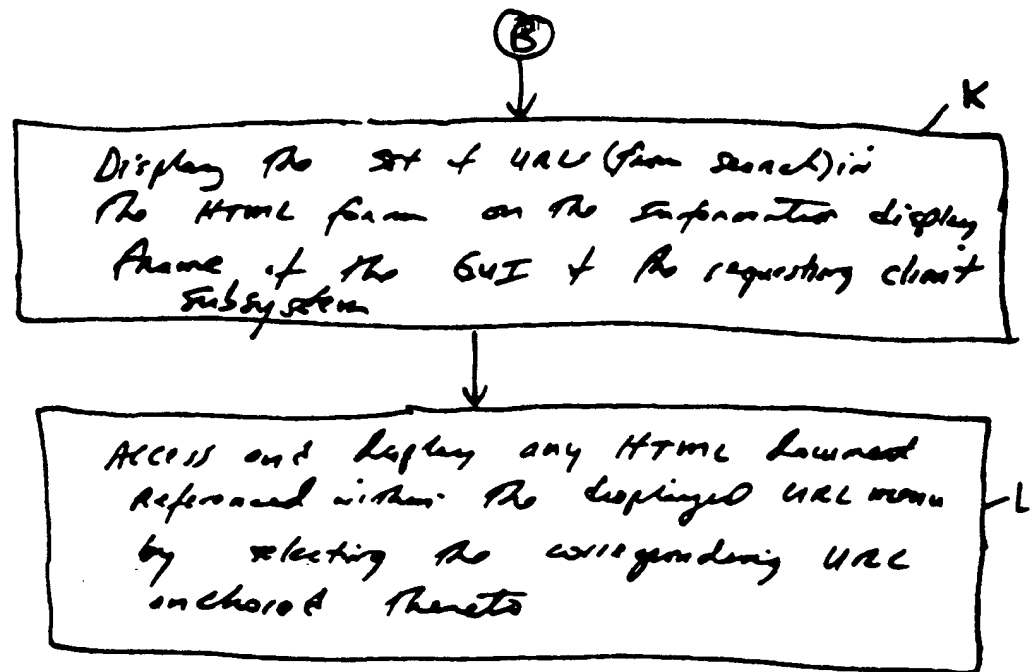 B
K
Display the set of URLs (from search) in
the HTML form on the information display
frame of the GUI of the requesting client
subsystem
Access and display any HTML document
referenced within the displayed URL menu
by selecting the corresponding URL
anchored thereto
L